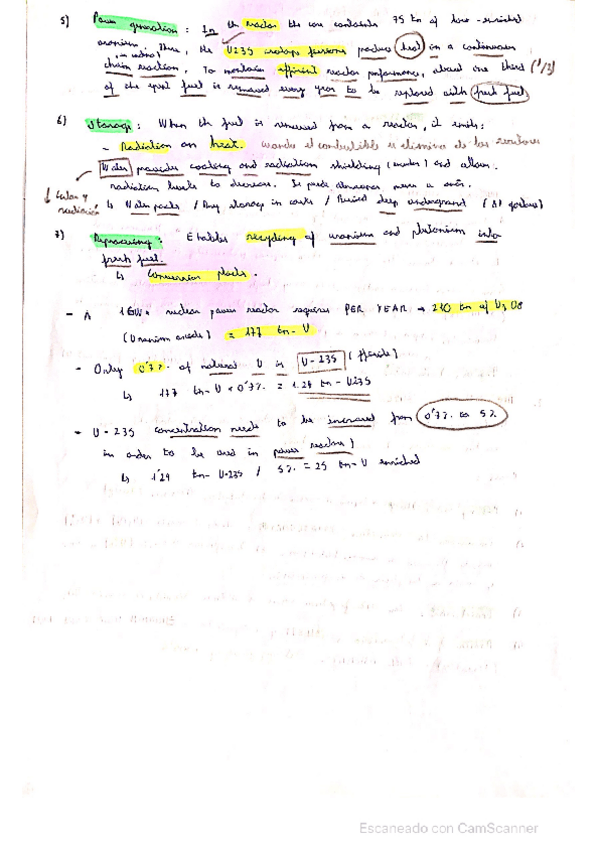 5) Power generation : In the reactor the core contains 75 tn of low-enriched
uranium, then, the U235 isotope fissions produce heat in a continuous
chain reaction. To maintain efficient reactor performance, about one third (1/3)
of the spent fuel is removed every year to be replaced with fresh fuel
6) Storage : When the fuel is removed from a reactor, it emits:
- Radiation and heat. cuando el combustible se elimina de los reactores
Water provides cooling and radiation shielding and allows
radiation levels to decrease. Se puede almacenar meses o años.
↓ calor y radiación
↳ Water pools / Dry storage in casks / Buried deep underground
7) Reprocessing : Enables recycling of uranium and plutonium into
fresh fuel.
↳ Conversion plants.
- A 1GWe nuclear power reactor requires PER YEAR → 210 tn of U3O8
(Uranium oxide) = 177 tn-U
- Only 0'7% of natural U is U-235 (fissile)
↳ 177 tn-U × 0'7% = 1.24 tn-U235
- U-235 concentration needs to be increased from 0'7% to 5%
in order to be used in power reactors
↳ 1'24 tn-U-235 / 5% = 25 tn-U enriched
Escaneado con CamScanner